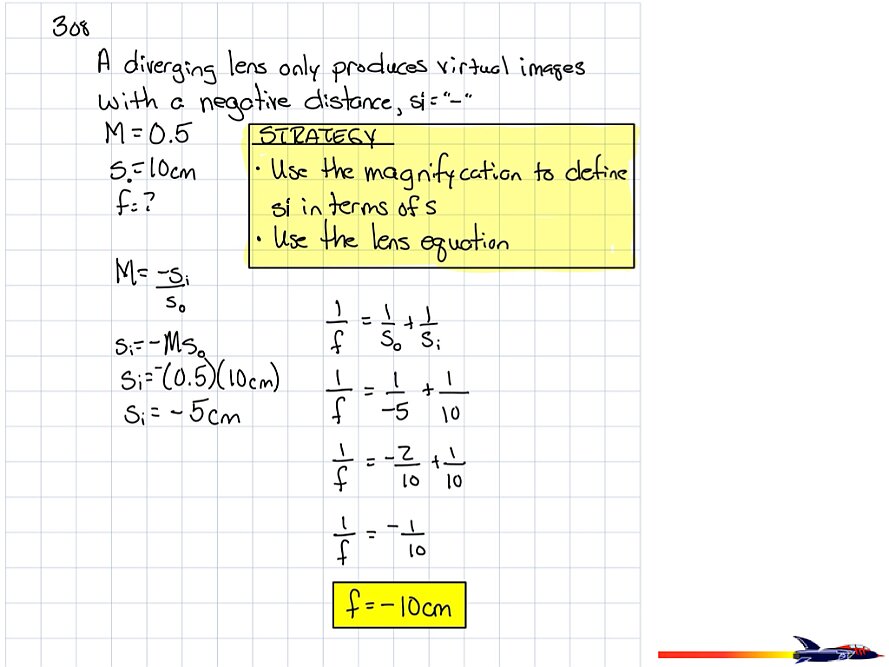 308
A diverging lens only produces virtual images
with a negative distance, si = "-"
M = 0.5
s₀ = 10cm
f = ?
STRATEGY
• Use the magnifycation to define
si in terms of s
• Use the lens equation
M = -sᵢ/s₀
sᵢ = -Ms₀
sᵢ = -(0.5)(10cm)
sᵢ = -5cm
1/f = 1/S₀ + 1/Sᵢ
1/f = 1/-5 + 1/10
1/f = -2/10 + 1/10
1/f = -1/10
f = -10cm